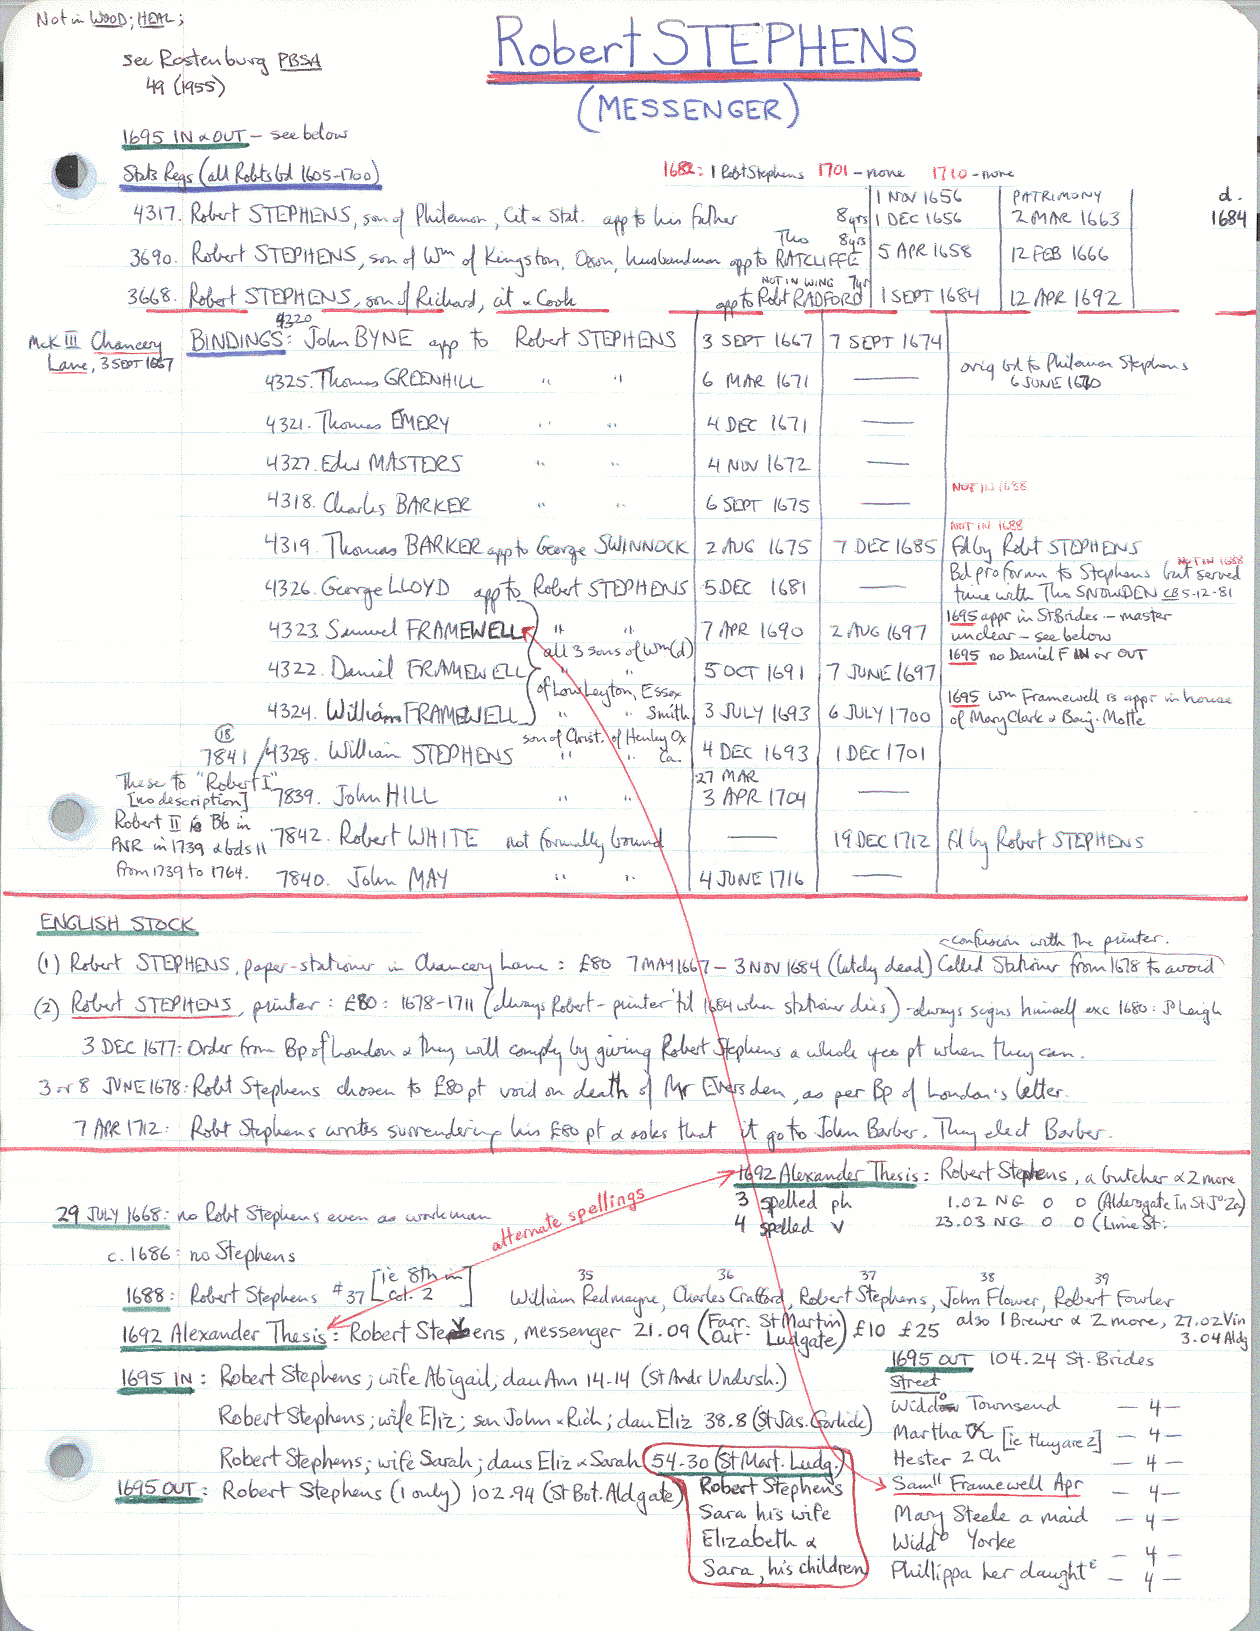 Not in WOOD; HEAL;
Robert STEPHENS
(MESSENGER)
see Rostenburg PBSA
49 (1955)
1695 IN & OUT - see below
Stats Regs (all Robts bd 1605-1700)
1682: 1 Robt Stephens 1701 - none 1710 - none
4317. Robert STEPHENS, son of Philemon, Cit & Stat. app to his father 8 yrs 1 NOV 1656 1 DEC 1656 PATRIMONY 2 MAR 1663 d. 1684
3690. Robert STEPHENS, son of Wm of Kingston, Oxon, husbandman app to Tho RATCLIFFE 8 yrs 5 APR 1658 12 FEB 1666
3668. Robert STEPHENS, son of Richard, cit & Cook app to Robt RADFORD NOT IN WING 7 yrs 1 SEPT 1684 12 APR 1692
McK III Chancery
Lane, 3 SEPT 1667
BINDINGS: 4320 John BYNE app to Robert STEPHENS 3 SEPT 1667 7 SEPT 1674
4325. Thomas GREENHILL " " 6 MAR 1671 — orig bd to Philemon Stephens
6 JUNE 1670
4321. Thomas EMERY " " 4 DEC 1671 —
4327. Edw MASTERS " " 4 NOV 1672 —
4318. Charles BARKER " " 6 SEPT 1675 — NOT IN 1688
4319. Thomas BARKER app to George SWINNOCK 2 AUG 1675 7 DEC 1685 NOT IN 1688 fd by Robt STEPHENS
4326. George LLOYD app to Robert STEPHENS 5 DEC 1681 — Bd pro forma to Stephens but served NOT IN 1688
time with Tho SNOWDEN CB 5-12-81
4323. Samuel FRAMEWELL " " 7 APR 1690 2 AUG 1697 1695 appr in St Brides - master
unclear - see below
all 3 sons of Wm (d)
4322. Daniel FRAMEWELL " " 5 OCT 1691 7 JUNE 1697 1695 no Daniel F IN or OUT
of Low Leyton, Essex
4324. William FRAMEWELL " " Smith 3 JULY 1693 6 JULY 1700 1695 Wm Framewell is appr in house
of Mary Clark & Benj. Motte
son of Christ. of Henley Ox
(18)
7841 / 4328. William STEPHENS " " Ca. 4 DEC 1693 1 DEC 1701
These to "Robert I"
[no description]
7839. John HILL " " 27 MAR 3 APR 1704 —
Robert II is Bb in
PNR in 1739 & bds 11
from 1739 to 1764.
7842. Robert WHITE not formally bound — 19 DEC 1712 fd by Robert STEPHENS
7840. John MAY " " 4 JUNE 1716 —
ENGLISH STOCK
confusion with the printer.
(1) Robert STEPHENS, paper-stationer in Chancery Lane: £80 7 MAY 1667 - 3 NOV 1684 (lately dead) Called Stationer from 1678 to avoid
(2) Robert STEPHENS, printer: £80: 1678-1711 (always Robert - printer 'til 1684 when stationer dies) - always signs himself exc 1680: Jo Leigh
3 DEC 1677: Order from Bp of London & they will comply by giving Robert Stephens a whole £80 pt when they can.
3 or 8 JUNE 1678: Robt Stephens chosen to £80 pt void on death of Mr Eversden, as per Bp of London's letter.
7 APR 1712: Robt Stephens writes surrendering his £80 pt & asks that it go to John Barber. They elect Barber.
1692 Alexander Thesis: Robert Stephens, a butcher & 2 more
3 spelled ph 1.02 NG 0 0 (Aldersgate In St Jo Za)
4 spelled v 23.03 NG 0 0 (Lime St:
alternate spellings
29 JULY 1668: no Robt Stephens even as workman
c. 1686: no Stephens
1688: Robert Stephens #37 [ie 8th in Col. 2]
35 36 37 38 39
William Redmayne, Charles Crafford, Robert Stephens, John Flower, Robert Fowler
1692 Alexander Thesis: Robert Stevens, messenger 21.09 (Farr. St Martin Out: Ludgate) £10 £25 also 1 Brewer & 2 more, 27.02 Vin
3.04 Aldg
1695 IN: Robert Stephens; wife Abigail, dau Ann 14-14 (St Andr Undersh.)
Robert Stephens; wife Eliz; son John & Rich; dau Eliz 38.8 (St Jas. Garlick)
Robert Stephens; wife Sarah; daus Eliz & Sarah 54-30 (St Mart. Ludg.)
1695 OUT: Robert Stephens (1 only) 102.94 (St Bot. Aldgate)
Robert Stephens
Sara his wife
Elizabeth &
Sara, his children
1695 OUT 104.24 St. Brides
Street
Widdo Townsend — 4 —
Martha Ch [ie they are 2] — 4 —
Hester 2 Ch — 4 —
Samll Framewell Apr — 4 —
Mary Steele a maid — 4 —
Widdo Yorke — 4 —
Phillippa her daughte — 4 —